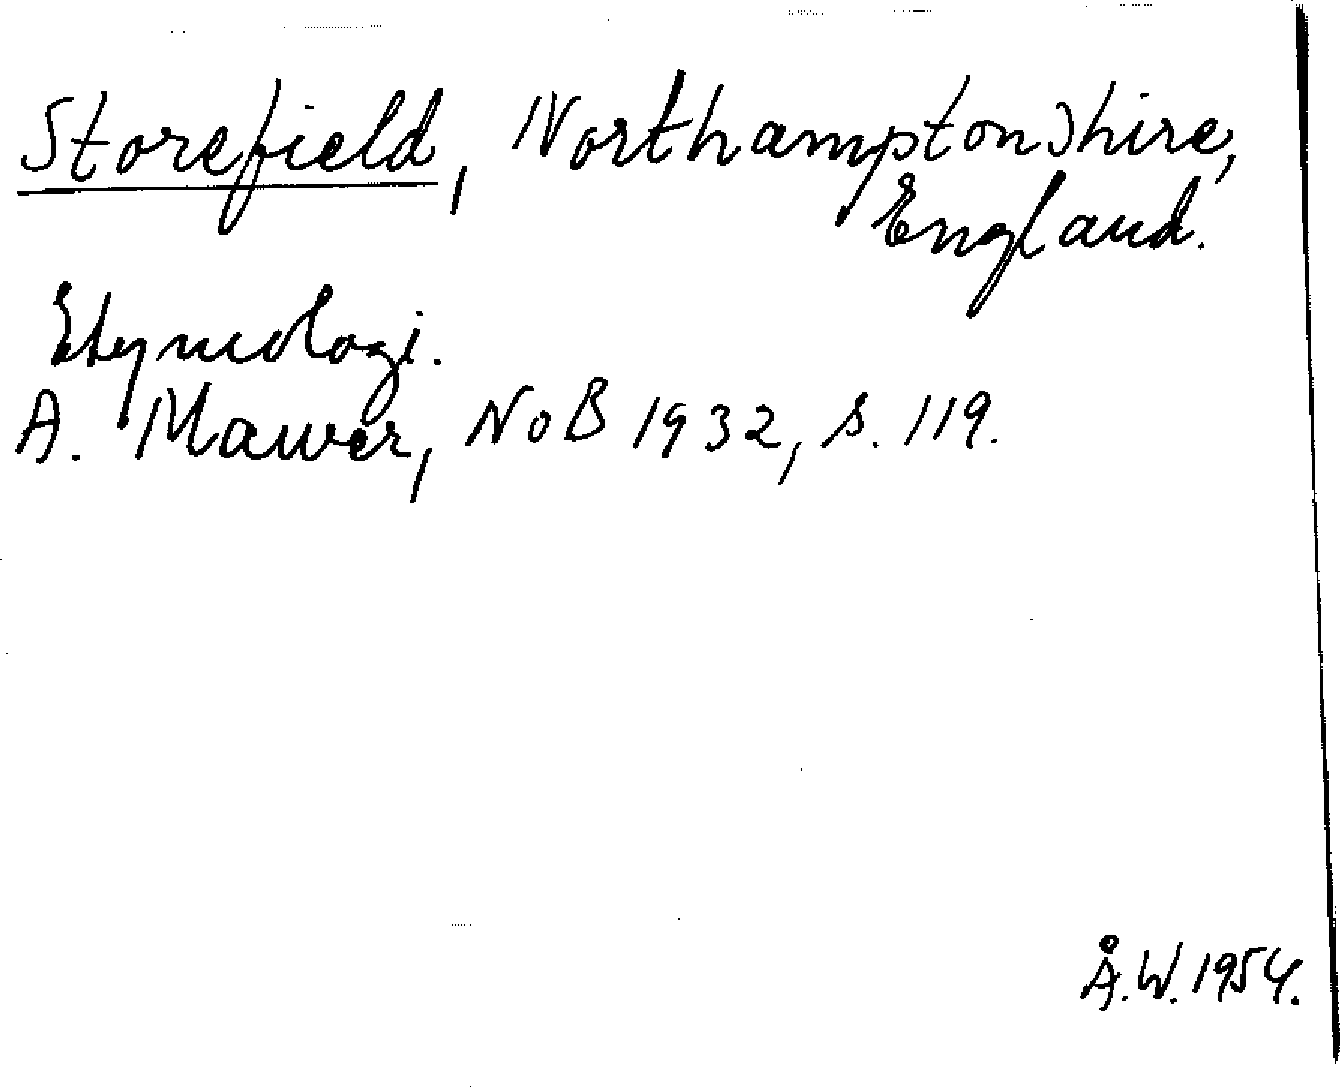 Storefield, Northamptonshire,
England.
Etymologi.
A. Mawer, NoB 1932, s. 119.
Å.W. 1954.